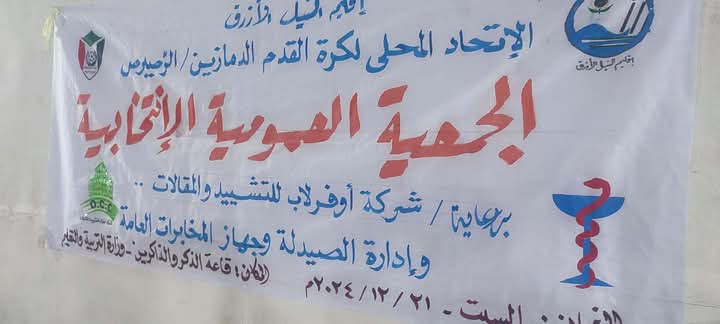 إقليم النيل الأزرق
الإتحاد المحلى لكرة القدم الدمازين/الرصيرص
إقليم النيل الأزرق
الجمعية العمومية الإنتخابية
برعاية / شركة أوفرلاب للتشييد والمقالات ..
O.C.C
وإدارة الصيدلة وجهاز المخابرات العامة
المكان: قاعة الذكر والذاكرين - وزارة التربية والتعليم
الزمان: السبت - ٢١ / ١٢ / ٢٠٢٤م